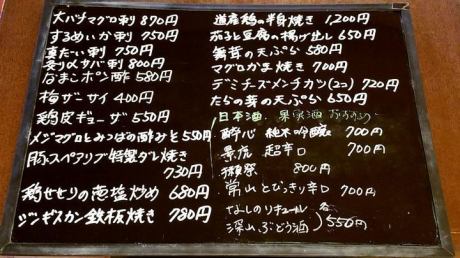 大バチマグロ刺 870円
するめいか刺 750円
真だい刺 750円
刻〆サバ刺 800円
なまこポン酢 580円
梅ザーサイ 400円
鶏皮ギョーザ 550円
メジマグロとみつばの酢みそ 550円
豚スペアリブ特製ダレ焼き
730円
鶏せせりの葱塩炒め 680円
ジンギスカン鉄板焼き 780円
道産鶏の半身焼き 1,200円
茄子と豆腐の揚げ出し 650円
舞茸の天ぷら 580円
マグロかま焼き 700円
デミチーズメンチカツ(2コ) 720円
たらの芽の天ぷら 650円
日本酒、果実酒
酔心 純米吟醸 700円
景虎 超辛口 700円
獺祭 800円
常山 とびっきり辛口 700円
なしのリキュール 各
深山ぶどう酒 550円